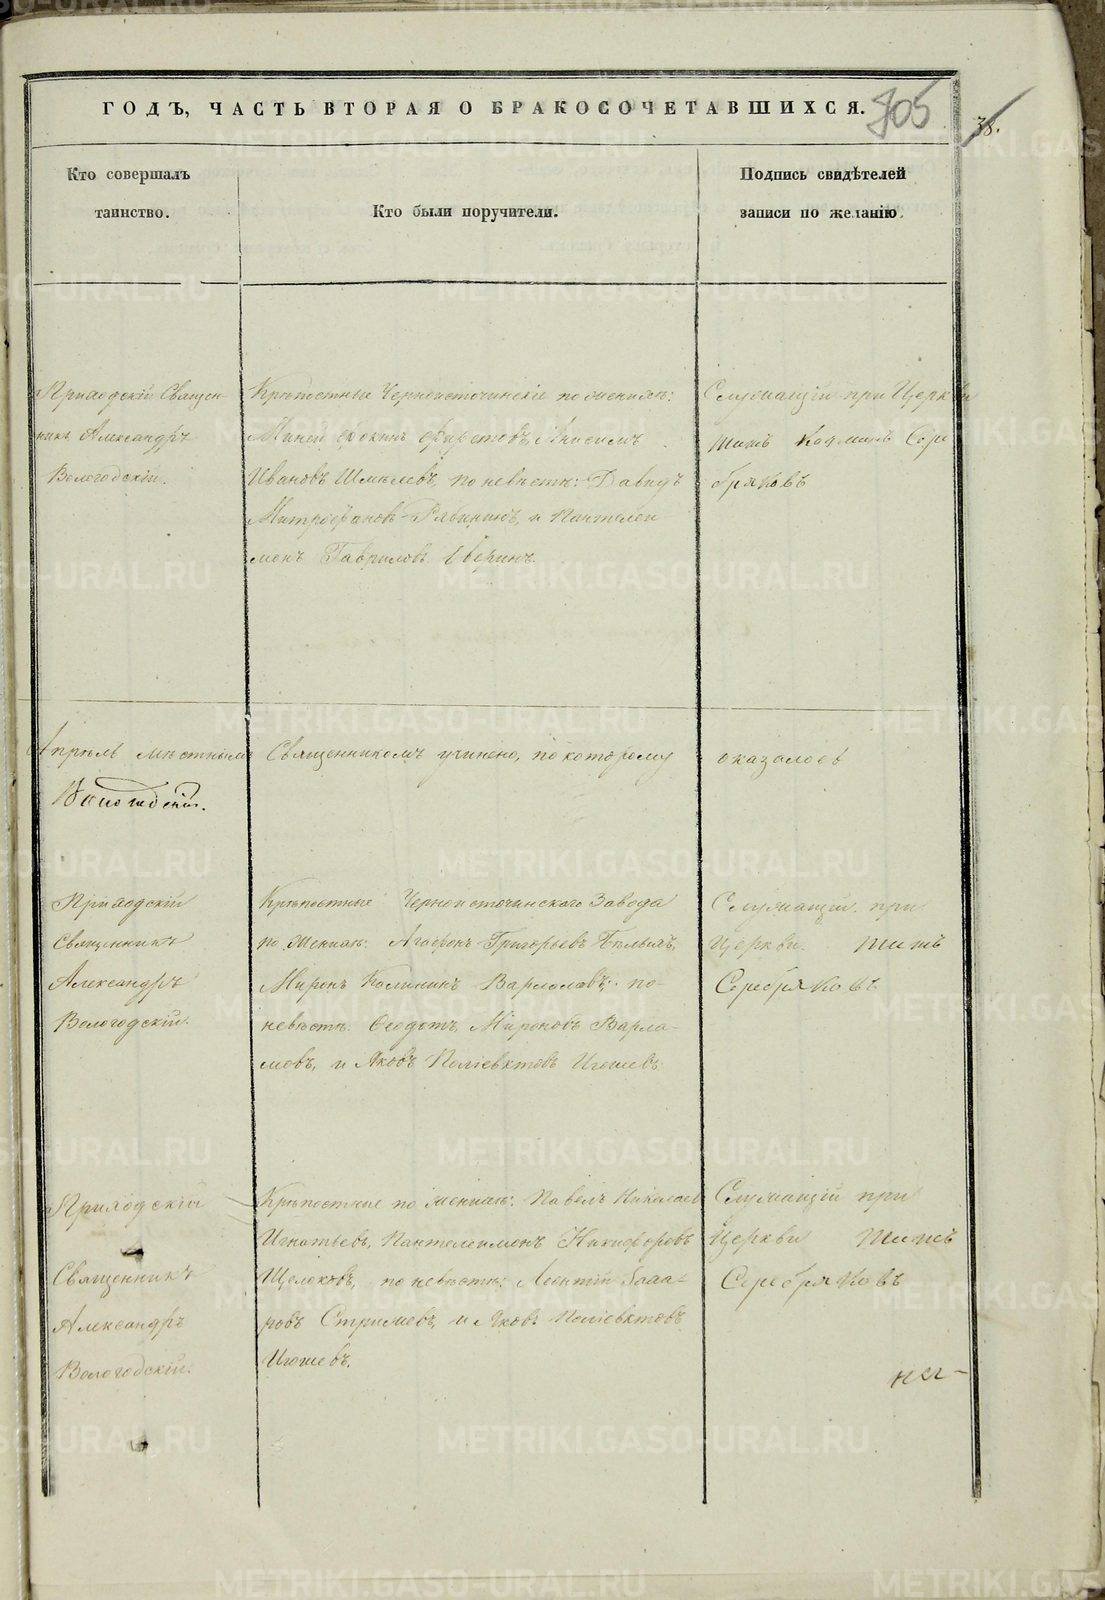 ГОДЪ, ЧАСТЬ ВТОРАЯ О БРАКОСОЧЕТАВШИХСЯ.
805
38.
Кто совершалъ
таинство.
Кто были поручители.
Подпись свидѣтелей
записи по желанію.
Приходскій Священ-
никъ Александръ
Вологодскій.
Крѣпостные Черноисточинскіе по женихѣ:
Миней Фокинъ Анисимъ
Ивановъ Шмелевъ, по невѣстѣ: Давидъ
Митрофановъ Рябининъ, и Пантелей
монъ Гавриловъ Аверинъ.
Служащій при Церкви
Титъ Козминъ Сере
бряковъ
Апрѣль мѣстнымъ Священникомъ учинено, по которому оказалось
Вологодскій.
Приходскій
Священникъ
Александръ
Вологодскій.
Крѣпостные Черноисточинскаго Завода
по Женихѣ: Агафонъ Григорьевъ Бѣлыхъ,
Миронъ Калининъ Варламовъ; по
невѣстѣ: Ѳеодотъ Мироновъ Варла-
мовъ, и Яковъ Поліевктовъ Игошевъ.
Служащій при
Церкви Титъ
Серебряковъ
Приходскій
Священникъ
Александръ
Вологодскій.
Крѣпостные по женихѣ: Павелъ Николаевъ
Игнатьевъ, Пантелеимонъ Никифоровъ
Щелоковъ, по невѣстѣ: Леонтій Заха-
ровъ Стрижевъ, и Яковъ Поліевктовъ
Игошевъ.
Служащій при
Церкви Титъ
Серебряковъ
METRIKI.GASO-URAL.RU